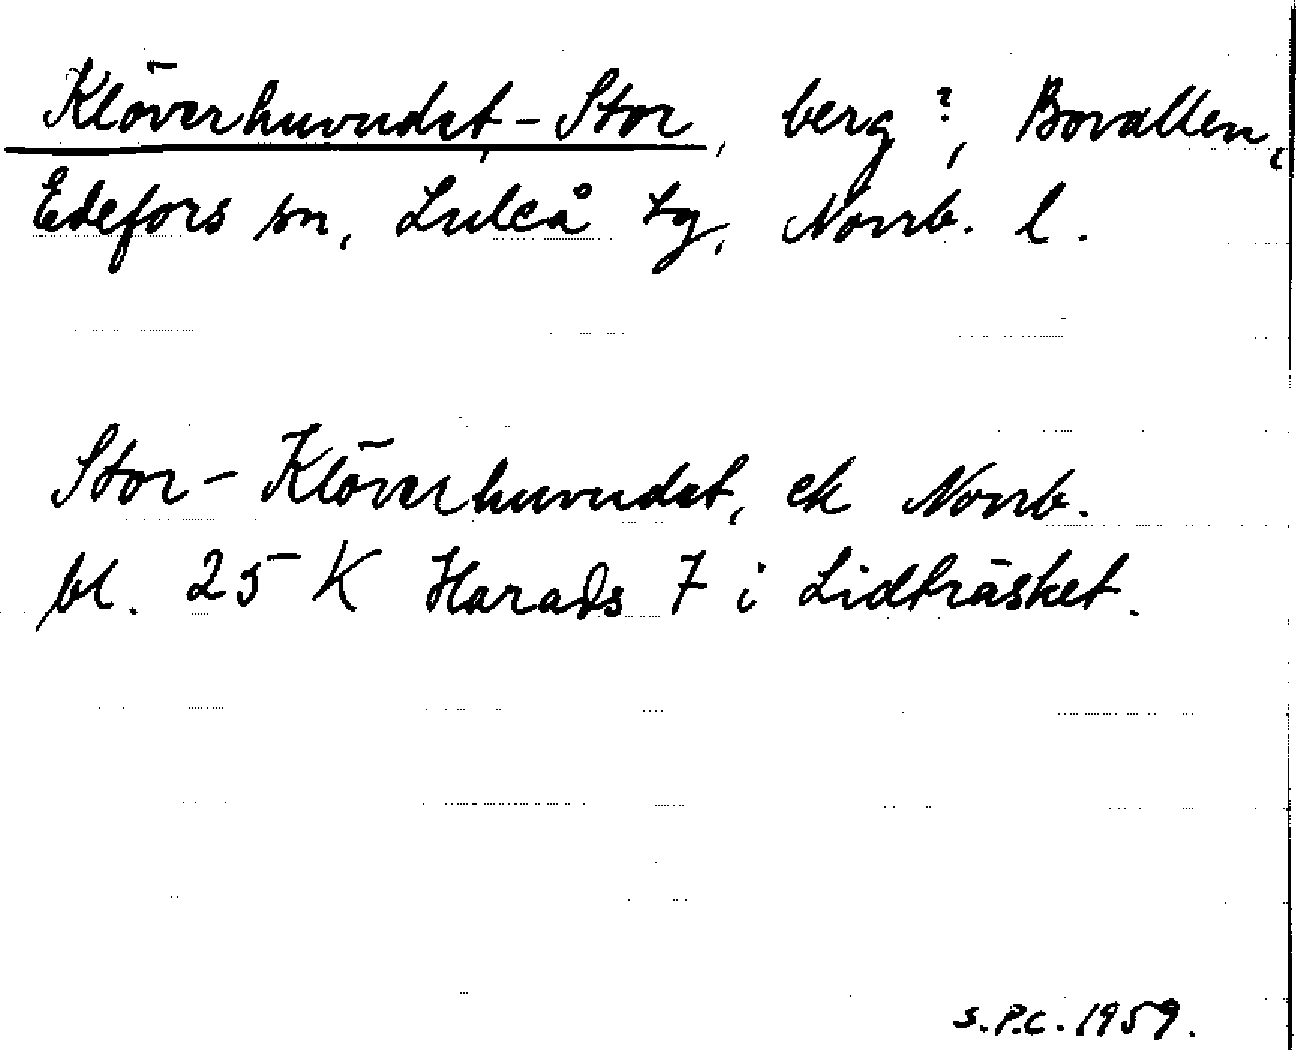 Klöverhuvudet, -Stor, berg?, Bovallen,
Edefors sn, Luleå tg, Norrb. l.
Stor-Klöverhuvudet, ek Norrb.
bl. 25 K Harads 7 i Lidträsket.
S.P.C. 1959.